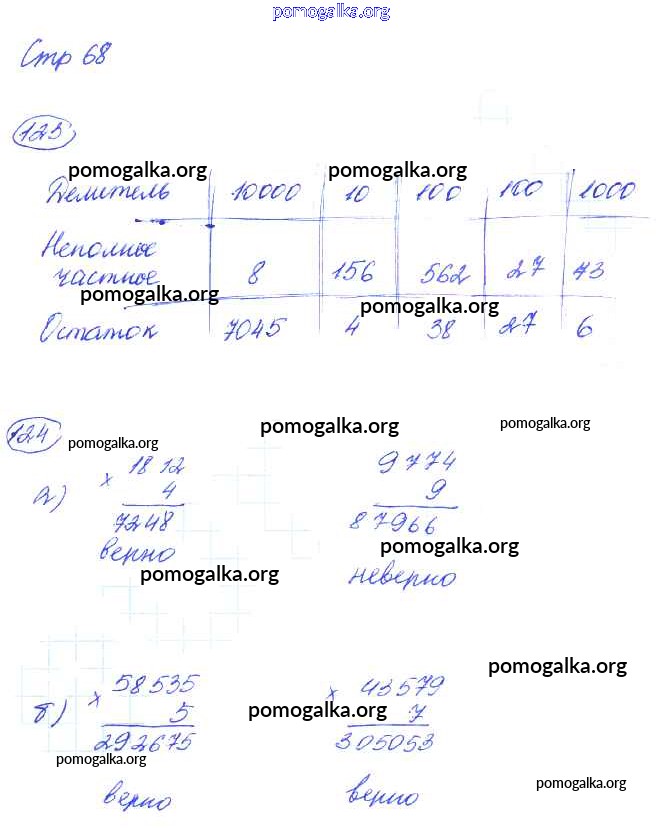 pomogalka.org
Стр 68
123
pomogalka.org pomogalka.org
Делитель 10000 10 100 100 1000
Неполное
частное 8 156 562 27 43
pomogalka.org pomogalka.org
Остаток 7045 4 38 27 6
124 pomogalka.org pomogalka.org pomogalka.org
а) × 1812 9774
4 9
7248 87966
верно pomogalka.org
pomogalka.org неверно
pomogalka.org
б) × 58535 × 43579
5 pomogalka.org 7
292675 305053
pomogalka.org
верно верно pomogalka.org